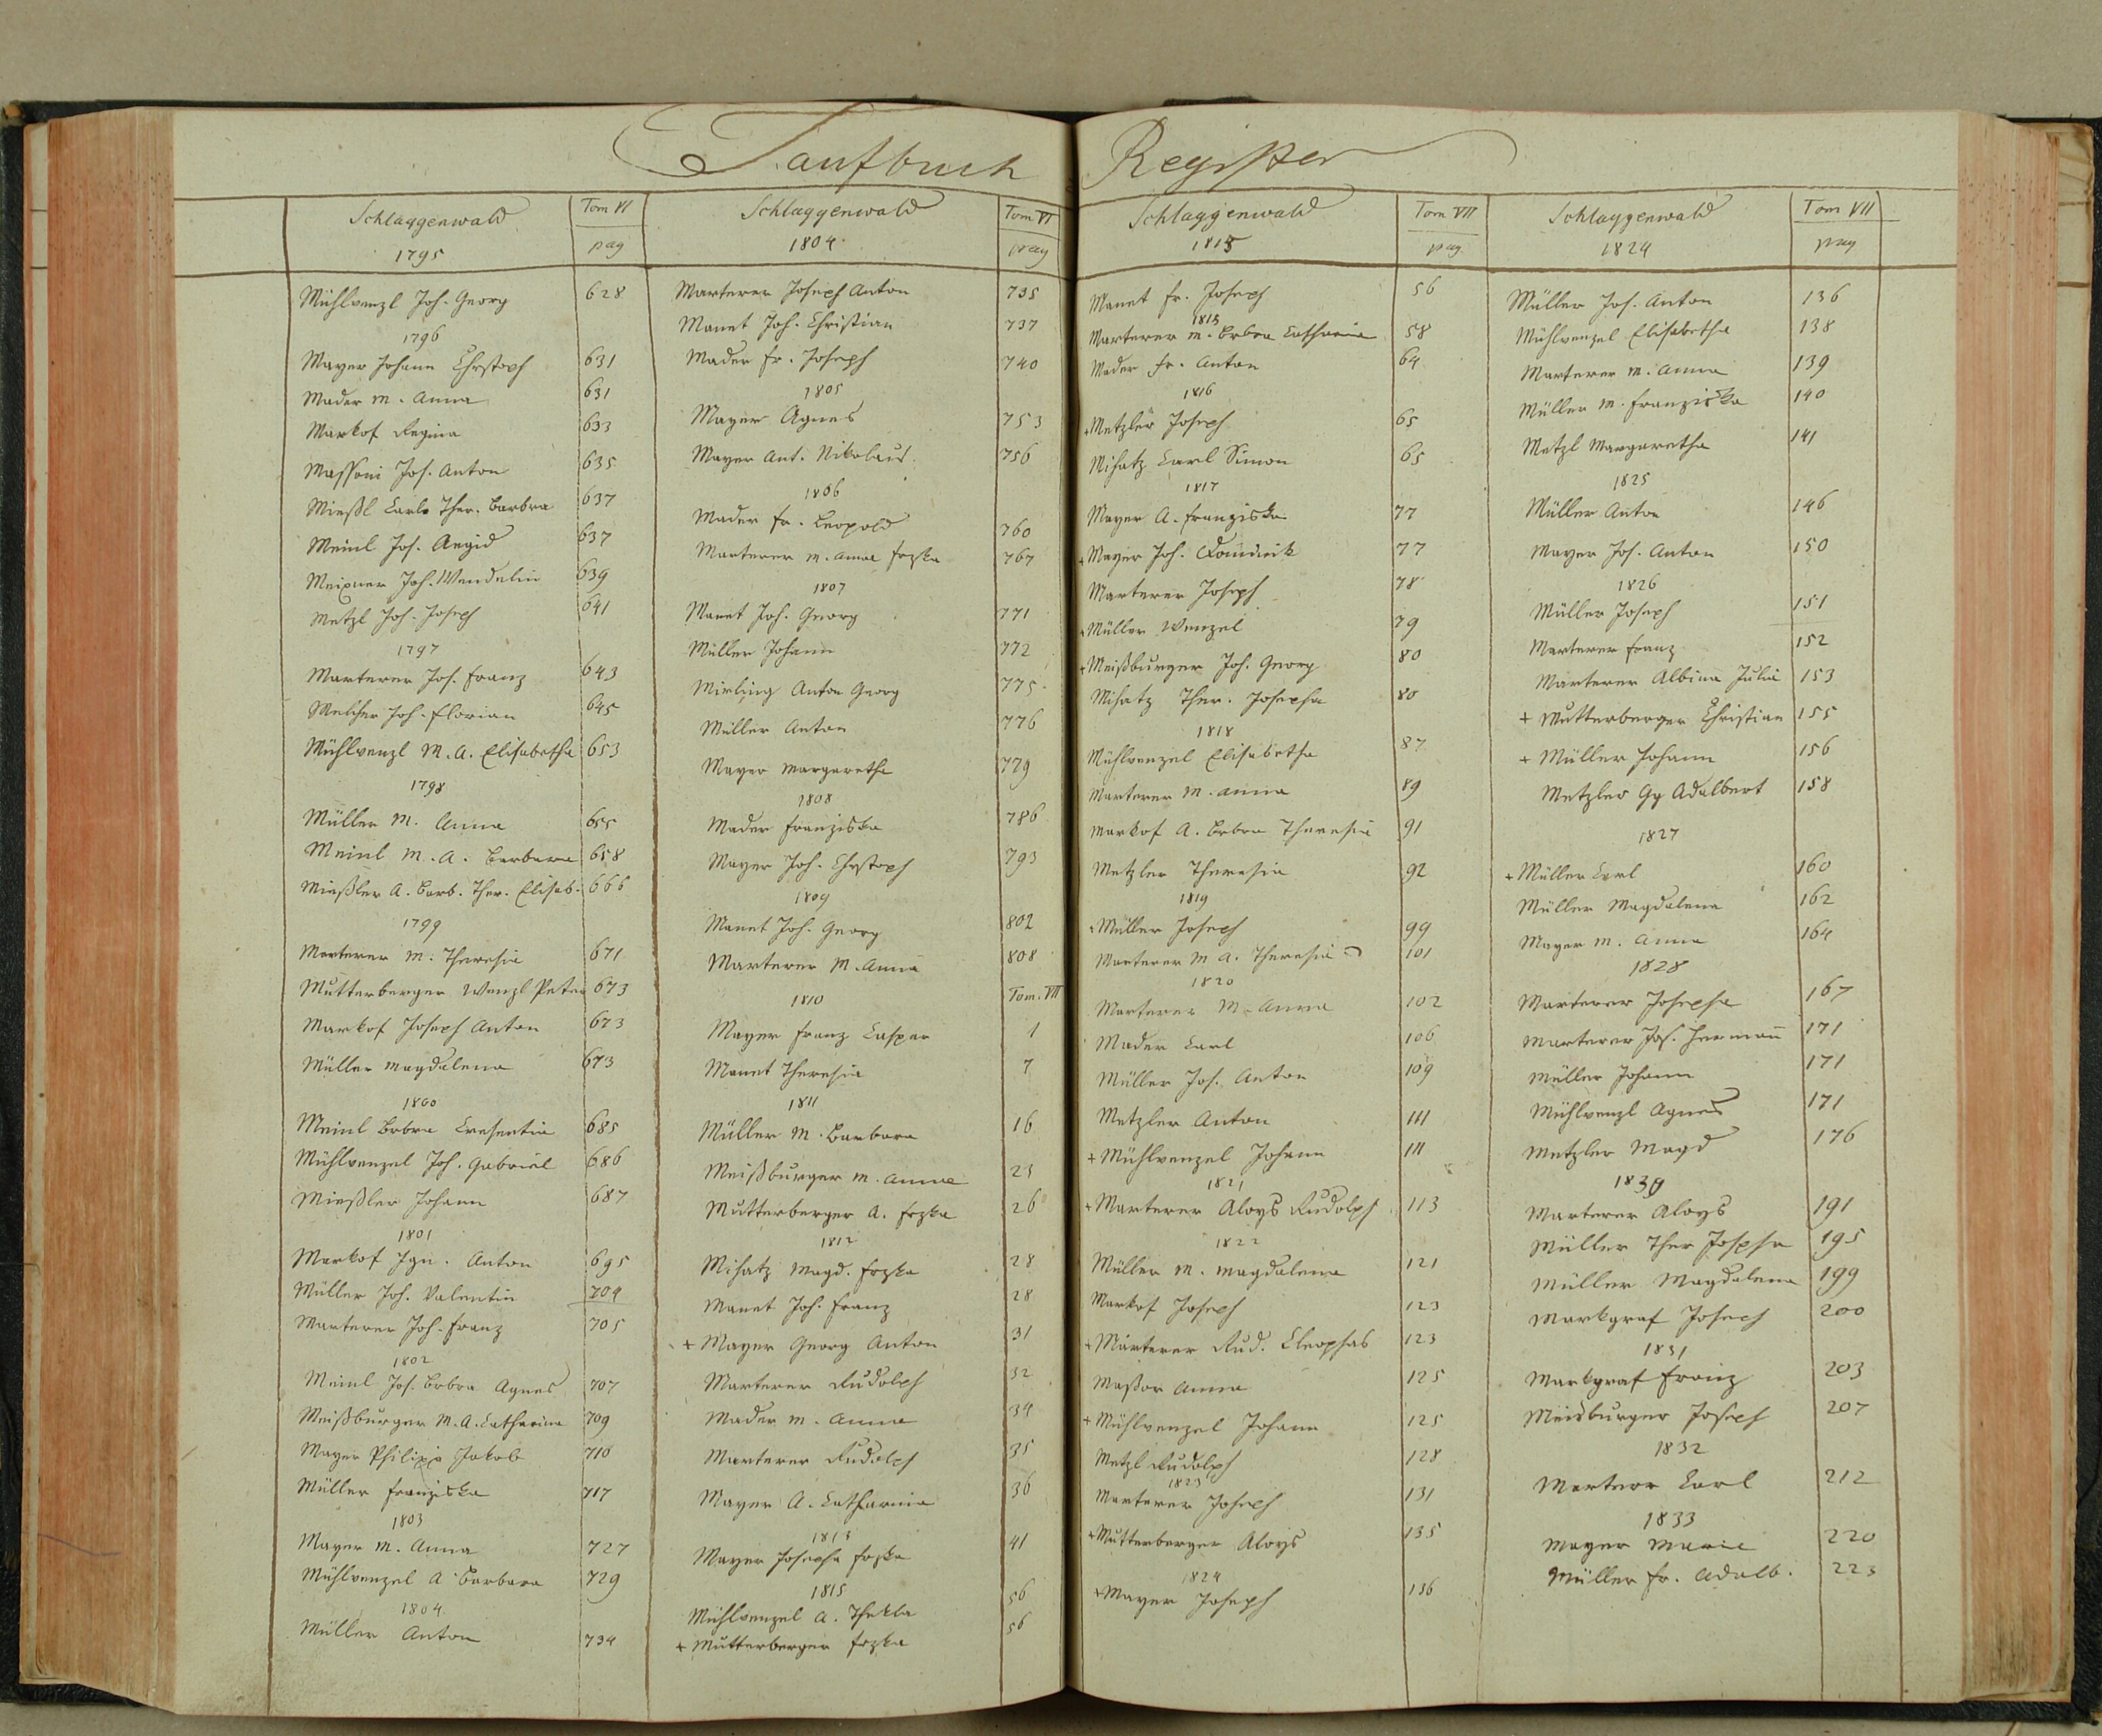 Taufbuch Register
Schlaggenwald Tom VI
1795 pag
Mühlvenzl Joh. Georg 628
1796
Mayer Johann Chrstoph 631
Mader M. Anna 631
Markof Regina 633
Massoni Jos. Anton 635
Mießl Carl Ther. Barbra 637
Meinl Jos. Aegid 637
Meixner Joh. Wendelin 639
Metzl Joh. Joseph 641
1797
Marterer Jos. Franz 643
Melcher Joh. Florian 645
Mühlvenzl M. A. Elisabetha 653
1798
Müller M. Anna 655
Meinl M. A. Barbara 658
Mießler A. Barb. Ther. Elisab. 666
1799
Marterer M. Theresia 671
Mutterberger Wenzl Peter 673
Markof Joseph Anton 673
Müller Magdalena 673
1800
Meinl Brbra Cresentia 685
Mühlvenzel Joh. Gabriel 686
Mießler Johann 687
1801
Markof Ign. Anton 695
Müller Joh. Valentin 704
Marterer Joh. Franz 705
1802
Meinl Jos. Brbra Agnes 707
Meißburger M. A. Catharina 709
Mayer Philipp Jakob 710
Müller Franziska 717
1803
Mayer M. Anna 727
Mühlvenzel A Barbara 729
1804
Müller Anton 734
Schlaggenwald Tom VI
1804 pag
Marterer Joseph Anton 735
Manet Joh. Christian 737
Mader Fr. Joseph 740
1805
Mayer Agnes 753
Mayer Ant. Nikolaus 756
1806
Mader Fr. Leopold 760
Marterer M. Anna Frzka 767
1807
Manet Joh. Georg 771
Müller Johann 772
Mirling Anton Georg 775
Müller Anton 776
Mayer Margaretha 779
1808
Mader Franziska 786
Mayer Joh. Chrstoph 793
1809
Manet Joh. Georg 802
Marterer M. Anna 808
1810 Tom. VII
Mayer Franz Caspar 1
Manet Theresia 7
1811
Müller M. Barbara 16
Meißburger M. Anna 23
Mutterberger A. Frzka 26
1812
Mihatz Magd. Frzka 28
Manet Joh. Franz 28
+ Mayer Georg Anton 31
Marterer Rudolph 32
Mader M. Anna 34
Marterer Rudolph 35
Mayer A. Catharina 36
1813
Mayer Josepha Frzka 41
1815
Mühlvenzel A. Thekla 56
+ Mutterberger Frzka 56
Schlaggenwald Tom VII
1815 pag.
Manet Fr. Joseph 56
1815
Marterer M. Brbra Catharina 58
Mader Fr. Anton 64
1816
+ Metzler Joseph 65
Mihatz Carl Simon 65
1817
Mayer A. Franziska 77
+ Mayer Joh. Dominik 77
Marterer Joseph 78
+ Müller Wenzel 79
+ Meißburger Joh. Georg 80
Mihatz Ther. Josepha 80
1818
Mühlvenzel Elisabetha 87
Marterer M. Anna 89
Markof A. Brbra Theresia 91
Metzler Theresia 92
1819
+ Müller Joseph 99
Marterer M A. Theresia 101
1820
Marterer M. Anna 102
Mader Carl 106
Müller Jos. Anton 109
Metzler Anton 111
+ Mühlvenzel Johann 111
1821
+ Marterer Aloys Rudolph 113
1822
Müller M. Magdalena 121
Markof Joseph 123
+ Marterer Rud. Cleophas 123
Anna 125
+ Mühlvenzel Johann 125
Metzl Rudolph 128
1823
Marterer Joseph 131
+ Mutterberger Aloys 135
1824
+ Mayer Joseph 136
Schlaggenwald Tom VII
1824 pag
Müller Jos. Anton 136
Mühlvenzel Elisabetha 138
Marterer M. Anna 139
Müller M. Franziska 140
Metzl Margaretha 141
1825
Müller Anton 146
Mayer Jos. Anton 150
1826
Müller Joseph 151
Marterer Franz 152
Marterer Albina Julia 153
+ Mutterberger Christian 155
+ Müller Johann 156
Metzler Gg Adalbert 158
1827
+ Müller Carl 160
Müller Magdalena 162
Mayer M. Anna 164
1828
Marterer Josepha 167
Marterer Jos. Hermann 171
Müller Johann 171
Mühlvenzl Agnes 171
Metzler Magd 176
1830
Marterer Aloys 191
Müller Ther Jospha 195
Müller Magdalena 199
Markgraf Joseph 200
1831
Markgraf Franz 203
Meisburger Joseph 207
1832
Marterer Carl 212
1833
Mayer Marie 220
Müller Fr. Adalb. 223